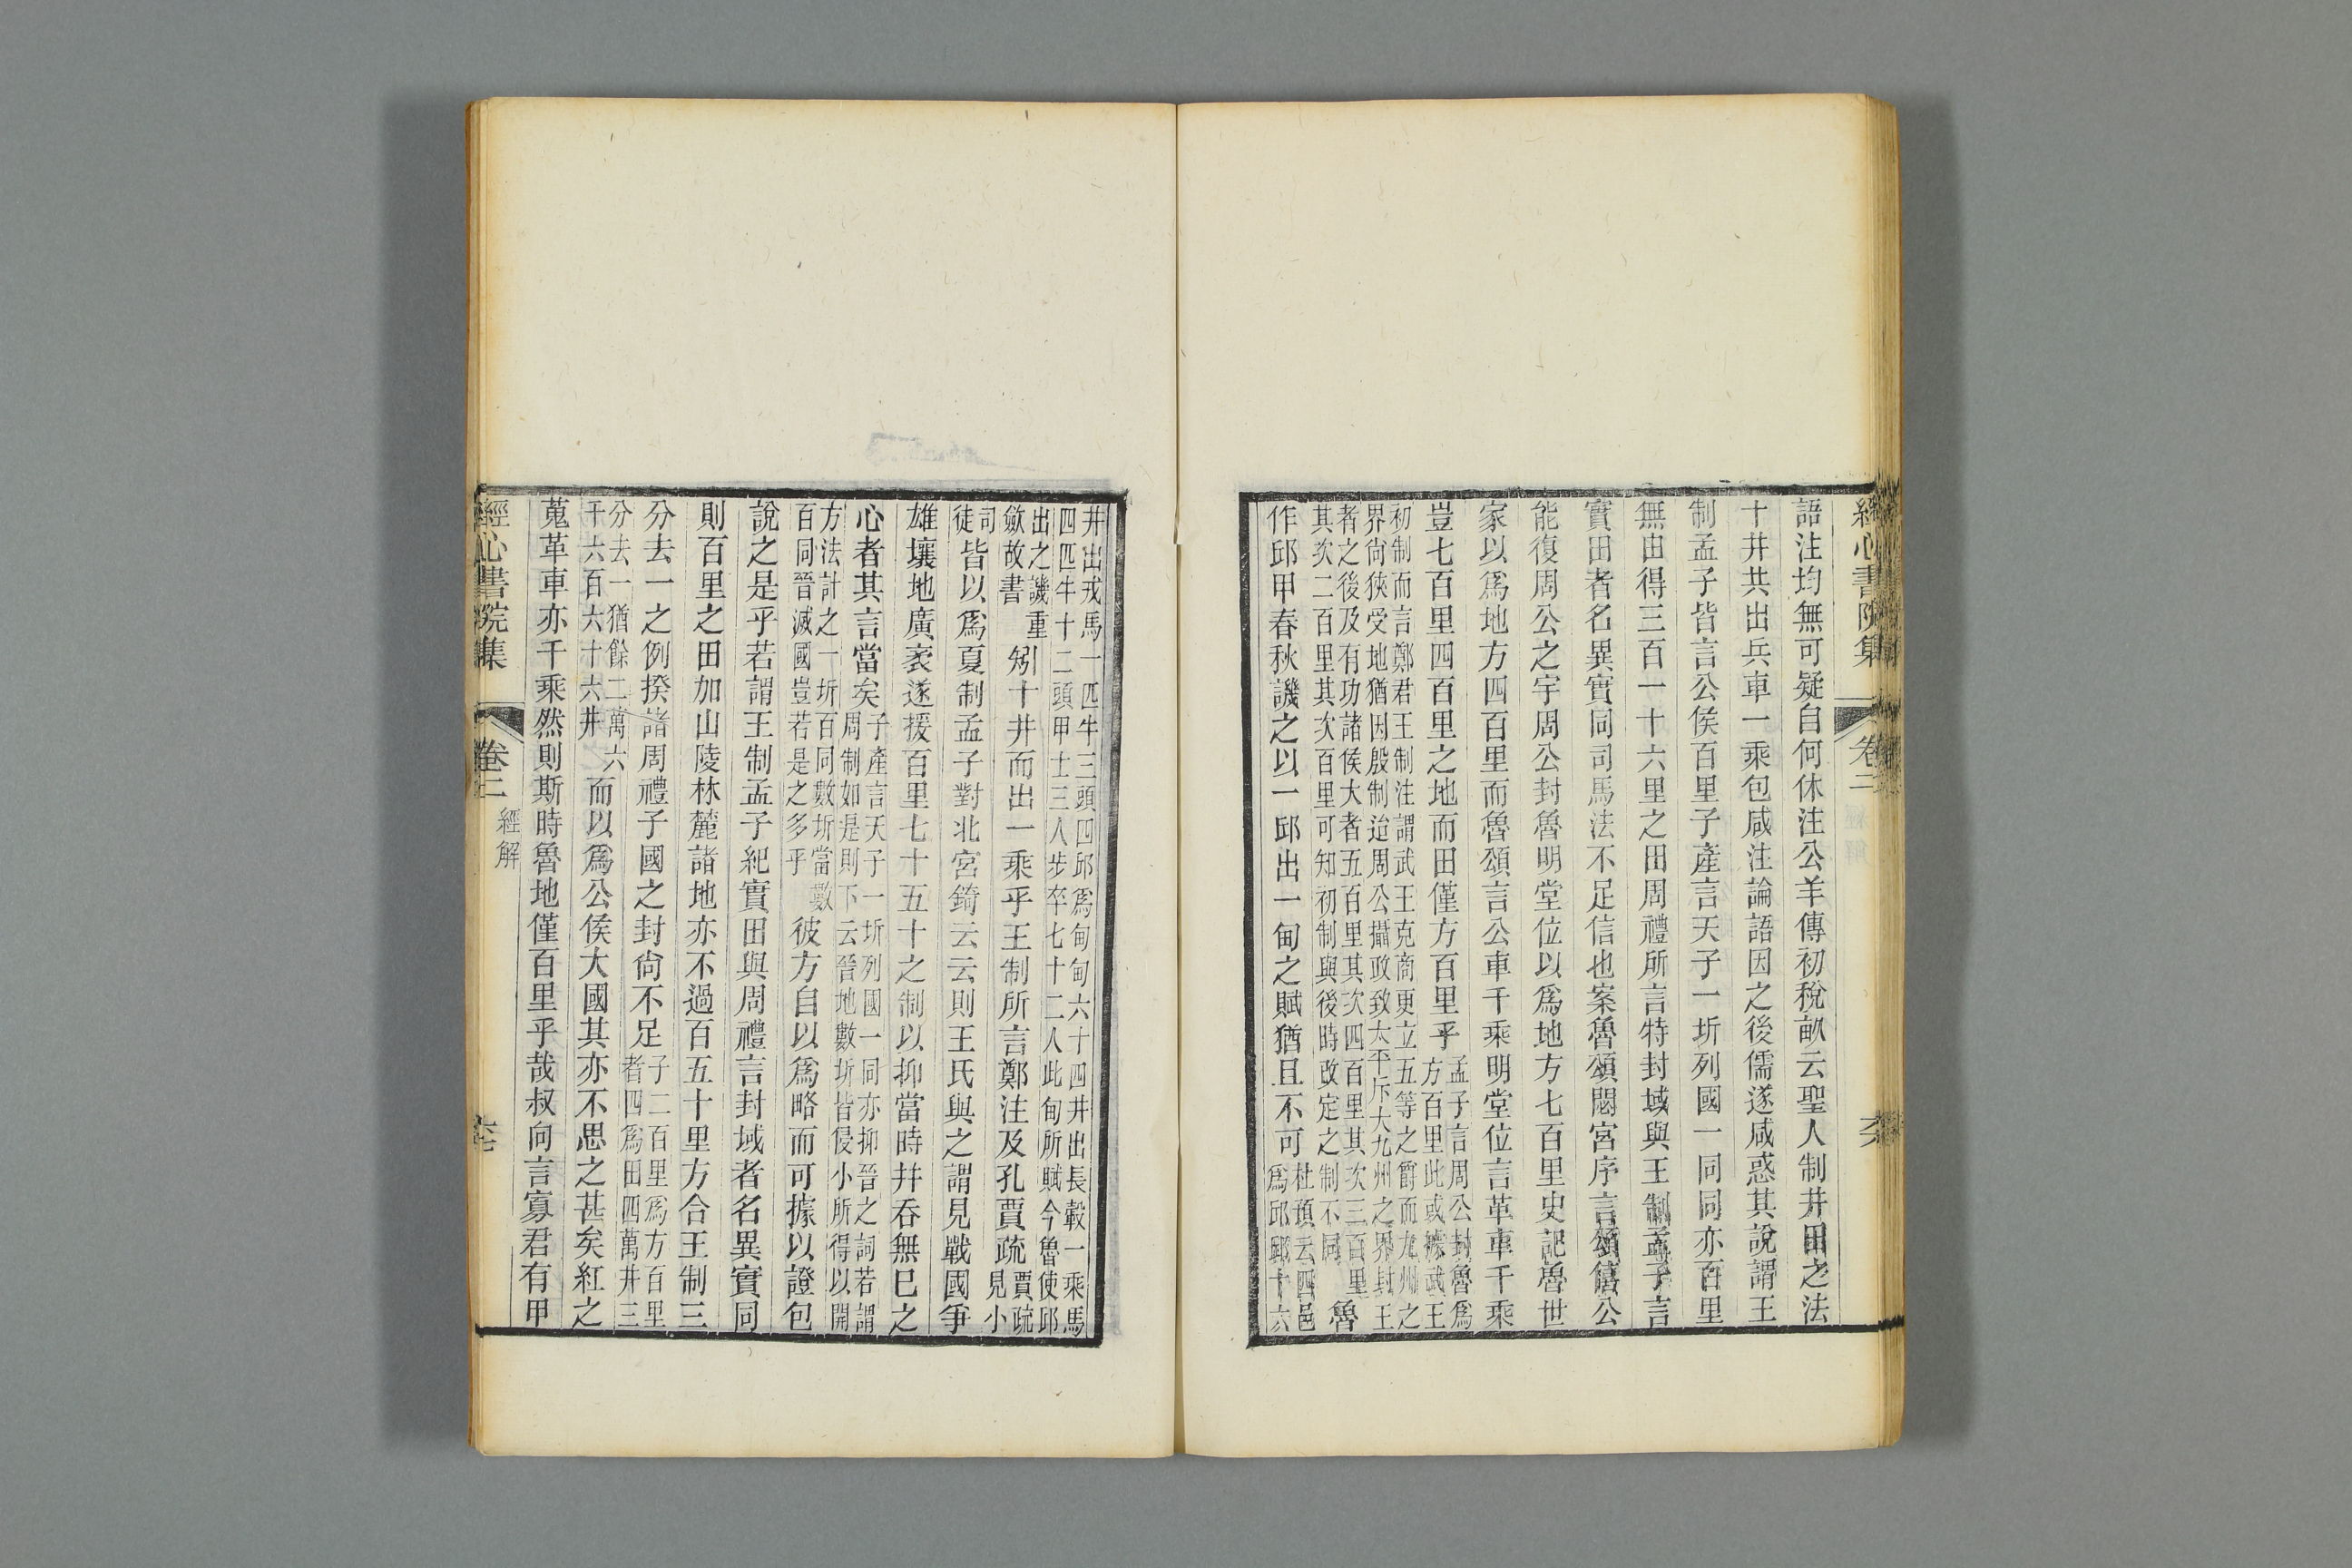 經心書院集 卷二
語注均無可疑自何休注公羊傳初稅畝云聖人制井田之法
十井共出兵車一乘包咸注論語因之後儒遂咸惑其說謂王
制孟子皆言公侯百里子產言天子一圻列國一同同亦百里
無由得三百一十六里之田周禮所言特封域與王制孟子言
實田者名異實同司馬法不足信也案魯頌閟宮序言頌僖公
能復周公之宇周公封魯明堂位以爲地方七百里史記魯世
家以爲地方四百里而魯頌言公車千乘明堂位言革車千乘
豈七百里四百里之地而田僅方百里乎
孟子言周公封魯爲
方百里此或據武王
初制而言鄭君王制注謂武王克商更立五等之爵而九州之
界尙狹受地猶因殷制迨周公攝政致太平斥大九州之界封王
者之後及有功諸侯大者五百里其次四百里其次三百里
其次二百里其次百里可知初制與後時改定之制不同
魯
作邱甲春秋譏之以一邱出一甸之賦猶且不可
杜預云四邑
爲邱邱十六
井出戎馬一匹牛三頭四邱爲甸甸六十四井出長轂一乘馬
四匹牛十二頭甲士三人步卒七十二人此甸所賦今魯使邱
出之譏重
斂故書
矧十井而出一乘乎王制所言鄭注及孔賈疏
賈疏
見小
司
徒
皆以爲夏制孟子對北宮錡云云則王氏與之謂見戰國爭
雄壤地廣袤遂援百里七十五十之制以抑當時并吞無已之
心者其言當矣
子產言天子一圻列國一同亦抑晉之詞若謂
周制如是則下云晉地數圻皆侵小所得以開
方法計之一圻百同數圻當數
百同晉滅國豈若是之多乎
彼方自以爲略而可據以證包
說之是乎若謂王制孟子紀實田與周禮言封域者名異實同
則百里之田加山陵林麓諸地亦不過百五十里方合王制三
分去一之例揆諸周禮子國之封尙不足
子二百里爲方百里
者四爲田四萬井三
分去一猶餘二萬六
千六百六十六井
而以爲公侯大國其亦不思之甚矣紅之
蒐革車亦千乘然則斯時魯地僅百里乎哉叔向言寡君有甲
經心書院集 卷二 經解